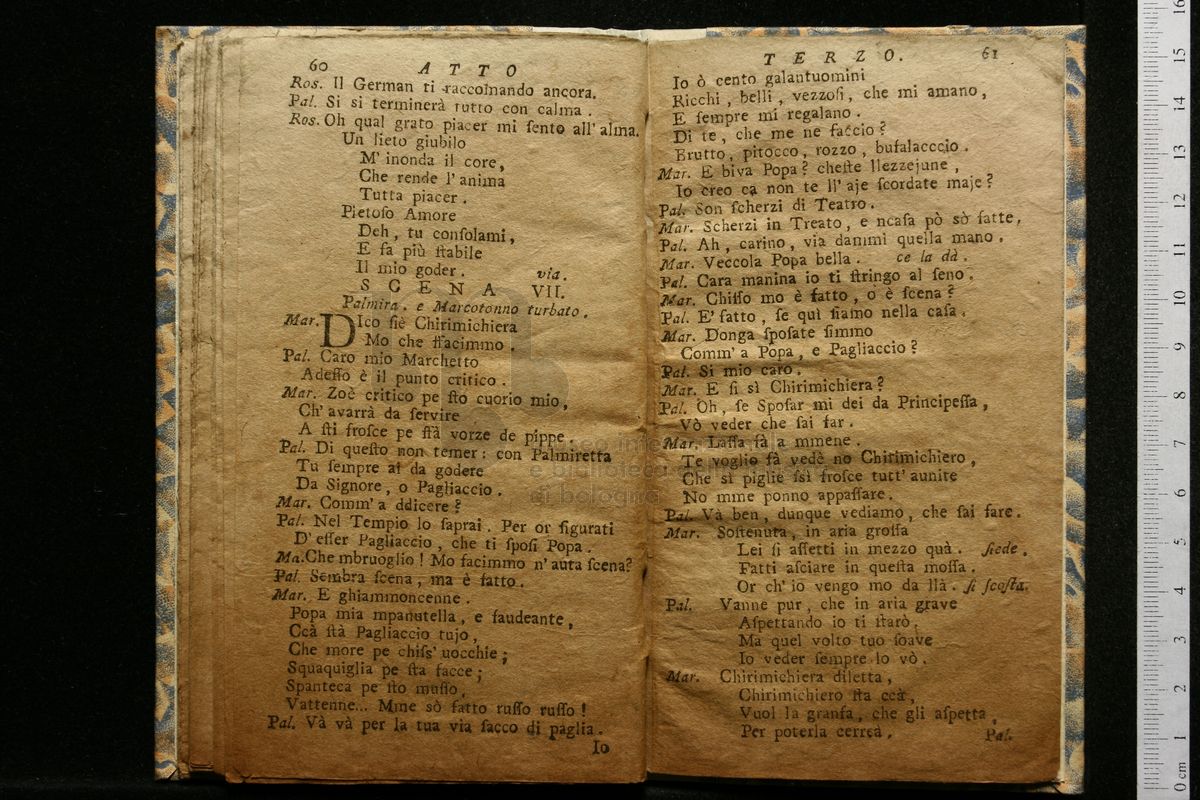 60 ATTO
Ros. Il German ti raccomando ancora.
Pal. Si si terminerà tutto con calma.
Ros. Oh qual grato piacer mi ſento all' alma.
Un lieto giubilo
M' inonda il core,
Che rende l' anima
Tutta piacer.
Pietoſo Amore
Deh, tu conſolami,
E fa più ſtabile
Il mio goder. via.
SCENA VII.
Palmira, e Marcotonno turbato.
Mar. DIco ſiè Chirimichiera
Mo che ffacimmo.
Pal. Caro mio Marchetto
Adeſſo è il punto critico.
Mar. Zoè critico pe ſto cuorio mio,
Ch' avarrà da ſervire
A ſti froſce pe ſtà vorze de pippe.
Pal. Di queſto non temer: con Palmiretta
Tu ſempre ai da godere
Da Signore, o Pagliaccio.
Mar. Comm' a ddicere?
Pal. Nel Tempio lo ſaprai. Per or figurati
D' eſſer Pagliaccio, che ti ſpoſi Popa.
Ma. Che mbruoglio! Mo facimmo n' auta ſcena?
Pal. Sembra ſcena, ma è fatto.
Mar. E ghiammoncenne.
Popa mia mpanutella, e ſaudeante,
Ccà ſtà Pagliaccio tujo,
Che more pe chiſs' uocchie;
Squaquiglia pe ſta facce;
Spanteca pe ſto muſſo,
Vattenne... Mme sò fatto ruſſo ruſſo!
Pal. Và và per la tua via ſacco di paglia.
Io
TERZO. 61
Io ò cento galantuomini
Ricchi, belli, vezzoſi, che mi amano,
E ſempre mi regalano.
Di te, che me ne faccio?
Brutto, pitocco, rozzo, bufalacccio.
Mar. E biva Popa? cheſte llezzejune,
Io creo ca non te ll' aje ſcordate maje?
Pal. Son ſcherzi di Teatro.
Mar. Scherzi in Treato, e ncaſa pò sò fatte,
Pal. Ah, carino, via dammi quella mano.
Mar. Veccola Popa bella. ce la dà.
Pal. Cara manina io ti ſtringo al ſeno.
Mar. Chiſſo mo è fatto, o è ſcena?
Pal. E' fatto, ſe quì ſiamo nella caſa.
Mar. Donga ſpoſate ſimmo
Comm' a Popa, e Pagliaccio?
Pal. Si mio caro.
Mar. E ſi sì Chirimichiera?
Pal. Oh, ſe Spoſar mi dei da Principeſſa,
Vò veder che ſai far.
Mar. Laſſa fà a mmene.
Te voglio fà vedè no Chirimichiero,
Che sì piglie ſsi froſce tutt' aunite
No mme ponno appaſſare.
Pal. Và ben, dunque vediamo, che ſai fare.
Mar. Soſtenuta, in aria groſſa
Lei ſi aſſetti in mezzo quà. ſiede.
Fatti aſciare in queſta moſſa.
Or ch' io vengo mo da llà. ſi ſcoſta.
Pal. Vanne pur, che in aria grave
Aſpettando io ti ſtarò.
Ma quel volto tuo ſoave
Io veder ſempre lo vò.
Mar. Chirimichiera diletta,
Chirimichiero ſta ccà,
Vuol la granfa, che gli aſpetta,
Per poterla cerreà.
Pal.